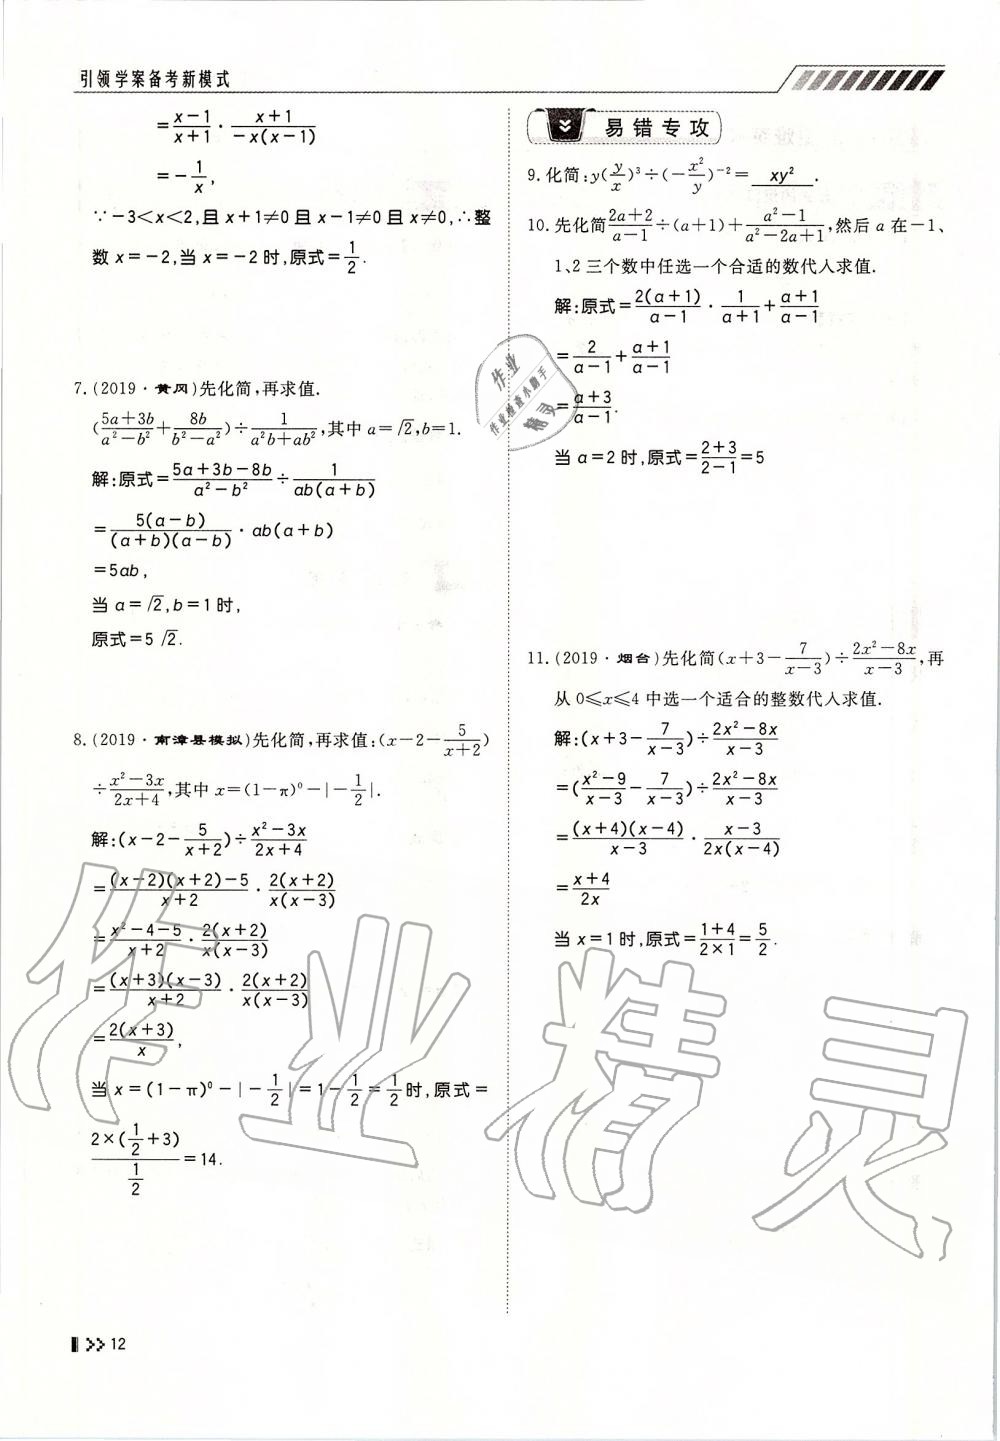 引领学案备考新模式
=\frac{x-1}{x+1}·\frac{x+1}{-x(x-1)}
=-\frac{1}{x},
∵-3<x<2,且x+1≠0且x-1≠0且x≠0,∴整
数x=-2,当x=-2时,原式=\frac{1}{2}.
7.(2019·黄冈)先化简,再求值.
(\frac{5a+3b}{a²-b²}+\frac{8b}{b²-a²})÷\frac{1}{a²b+ab²},其中a=√2,b=1.
解:原式=\frac{5a+3b-8b}{a²-b²}÷\frac{1}{ab(a+b)}
=\frac{5(a-b)}{(a+b)(a-b)}·ab(a+b)
=5ab,
当a=√2,b=1时,
原式=5√2.
8.(2019·南漳县模拟)先化简,再求值:(x-2-\frac{5}{x+2})
÷\frac{x²-3x}{2x+4},其中x=(1-π)⁰-|-\frac{1}{2}|.
解:(x-2-\frac{5}{x+2})÷\frac{x²-3x}{2x+4}
=\frac{(x-2)(x+2)-5}{x+2}·\frac{2(x+2)}{x(x-3)}
=\frac{x²-4-5}{x+2}·\frac{2(x+2)}{x(x-3)}
=\frac{(x+3)(x-3)}{x+2}·\frac{2(x+2)}{x(x-3)}
=\frac{2(x+3)}{x},
当x=(1-π)⁰-|-\frac{1}{2}|=1-\frac{1}{2}=\frac{1}{2}时,原式=
\frac{2×(\frac{1}{2}+3)}{\frac{1}{2}}=14.
易错专攻
9.化简:y(\frac{y}{x})³÷(-\frac{x²}{y})⁻²=xy².
10.先化简\frac{2a+2}{a-1}÷(a+1)+\frac{a²-1}{a²-2a+1},然后a在-1、
1、2三个数中任选一个合适的数代人求值.
解:原式=\frac{2(a+1)}{a-1}·\frac{1}{a+1}+\frac{a+1}{a-1}
=\frac{2}{a-1}+\frac{a+1}{a-1}
=\frac{a+3}{a-1}.
当a=2时,原式=\frac{2+3}{2-1}=5
11.(2019·烟台)先化简(x+3-\frac{7}{x-3})÷\frac{2x²-8x}{x-3},再
从0≤x≤4中选一个适合的整数代人求值.
解:(x+3-\frac{7}{x-3})÷\frac{2x²-8x}{x-3}
=(\frac{x²-9}{x-3}-\frac{7}{x-3})÷\frac{2x²-8x}{x-3}
=\frac{(x+4)(x-4)}{x-3}·\frac{x-3}{2x(x-4)}
=\frac{x+4}{2x}
当x=1时,原式=\frac{1+4}{2×1}=\frac{5}{2}.
作业
作业检查小助手
精灵
作业精灵
12